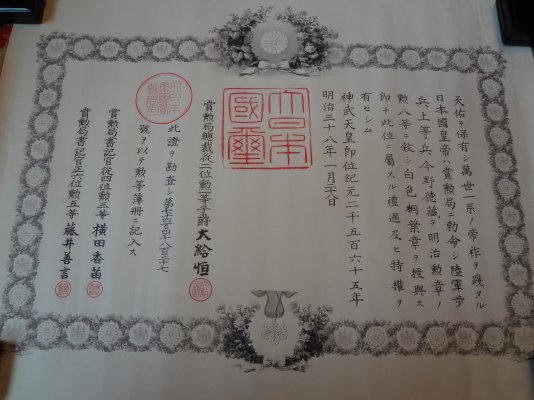 天佑ヲ保有シ萬世一系ノ帝祚ヲ踐タル
日本國皇帝ハ賞勲局ニ勅命シ陸軍歩
兵上等兵今野德藏ヲ明治勲章ノ
勲八等ニ敍シ白色桐葉章ヲ授與ス
即チ此位ニ屬スル禮遇及ヒ特權ヲ
有セシム
神武天皇即位紀元二千五百六十五年
明治三十八年一月二十日
大日本國璽
賞勲局總裁從二位勲一等子爵大給恒
此證ヲ勘査シ第
號ヲ以テ勲等簿册ニ記入ス
賞勲局書記官從四位勲三等橫田香苗
賞勲局書記官正六位勲五等藤井善言